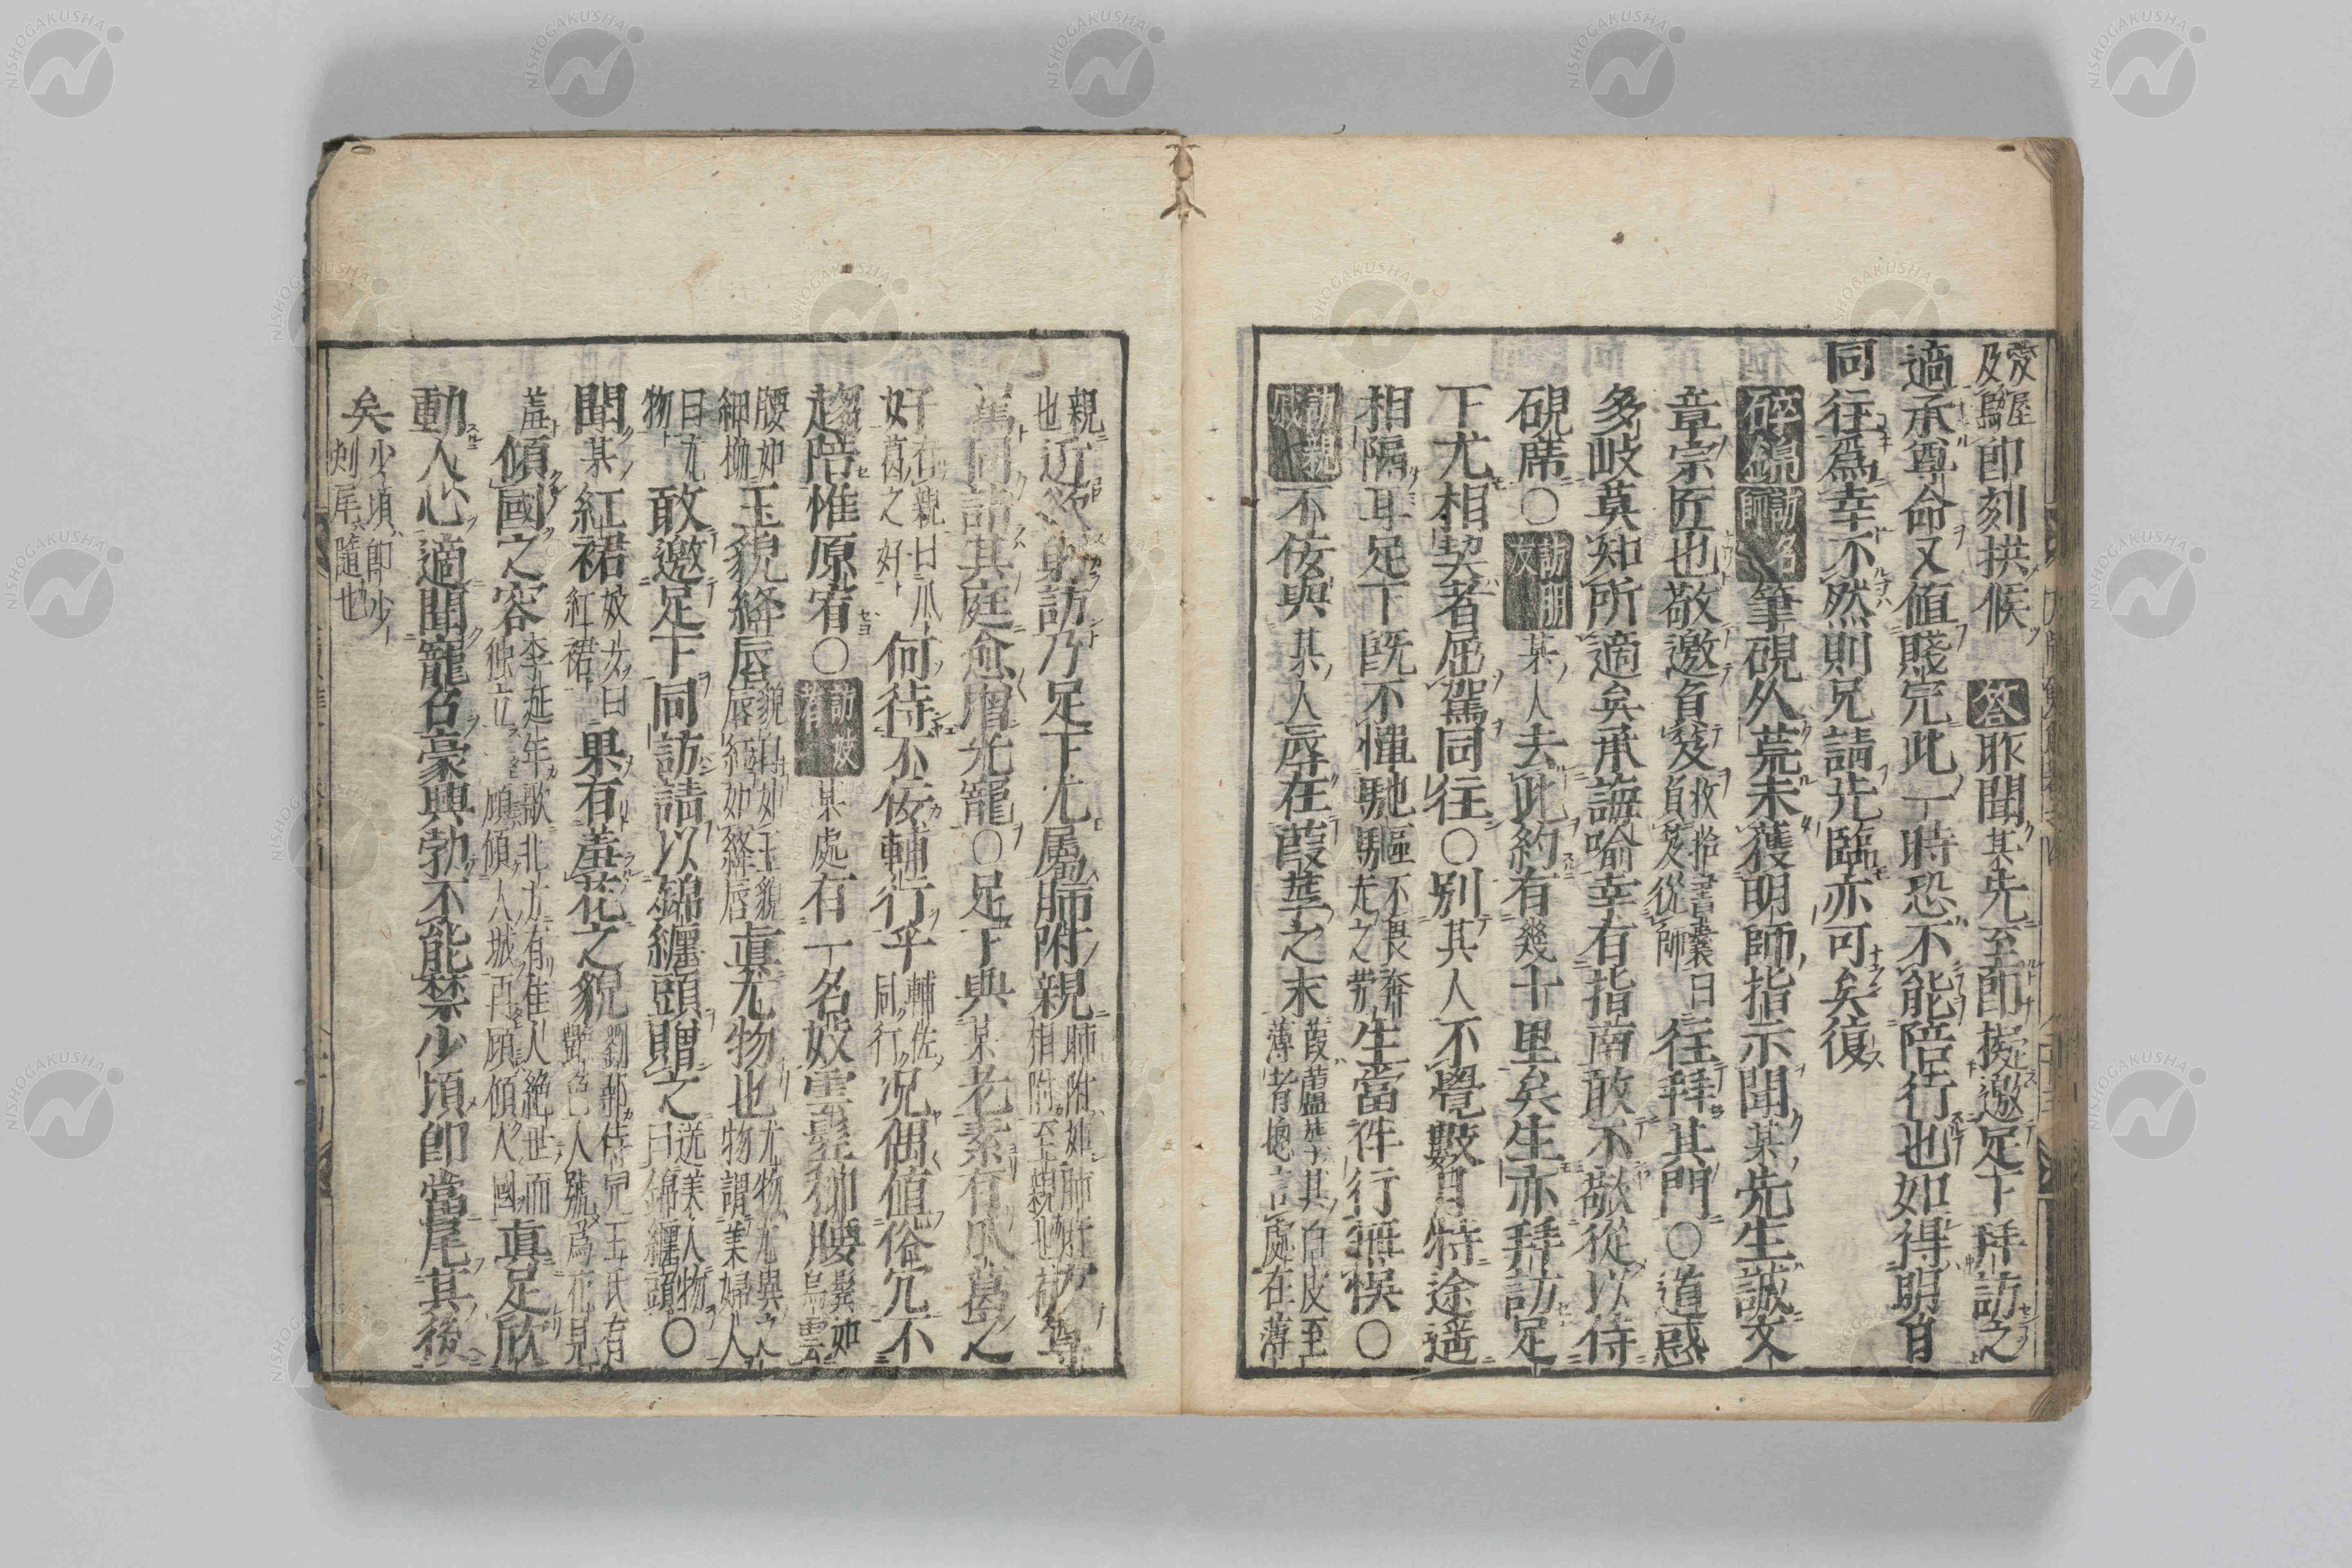 愛屋及烏即刻拱候答昨聞某先至即擬邀足下拜訪之
適承尊命又値賤冗此一時恐不能陪行也如得明日
同往爲幸不然則兄請先臨亦可矣復
碎錦訪名師筆硯久荒未獲明師指示聞某先生誠文
章宗匠也敬邀負笈收拾書囊曰負笈從師往拜其門○道惑
多岐莫知所適矣承誨喩幸有指南敢不敬從以侍
硯席○訪朋友某人去此約有幾十里矣生亦拜訪足
下尤相契者屈駕同往○別其人不覺數月特途遥
相隔耳足下既不憚馳驅不畏奔走之勞生當伴行無悞○
訪親戚不佞與某人辱在葭莩之末葭蘆莩其白皮至薄者摠言處在薄
親也近欲躬訪乃足下尤屬肺附親肺附如肺腑相附至親也
萬同詣其庭愈增光寵○足下與某老素有瓜葛之
好何待不佞輔行乎輔佐同行况偶値俗冗不
趨陪惟原宥○訪妓者某處有一名妓雲鬟柳腰鬟如烏雲
腰如細柳玉貌絳唇貌白如玉貌唇紅如絳唇眞尤物也
敢邀足下同訪請以錦纏頭贈之送美人物曰錦纏頭○
聞某紅裙妓女曰紅裙果有羞花之貌
傾國之容李延年歌北方有佳人絶世而獨立一顧傾人城再顧傾人國眞足欣
動人心適聞寵召豪興勃不能禁少頃即當尾其後
矣少頃即少刻尾隨也
NISHOGAKUSHA